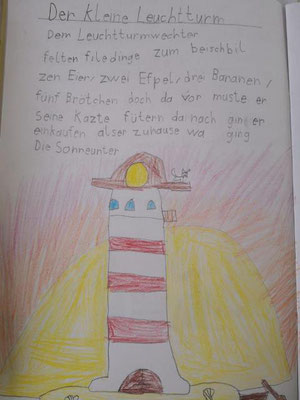 Der kleine Leuchtturm
Dem Leuchtturmwechter
felten file dinge zum beischbil
zen Eier, zwei Efpel, drei Bananen,
fünf Brötchen doch da vor muste er
seine Kazte fütern da nach ging er
einkaufen alser zuhause wa ging
Die Sonneunter